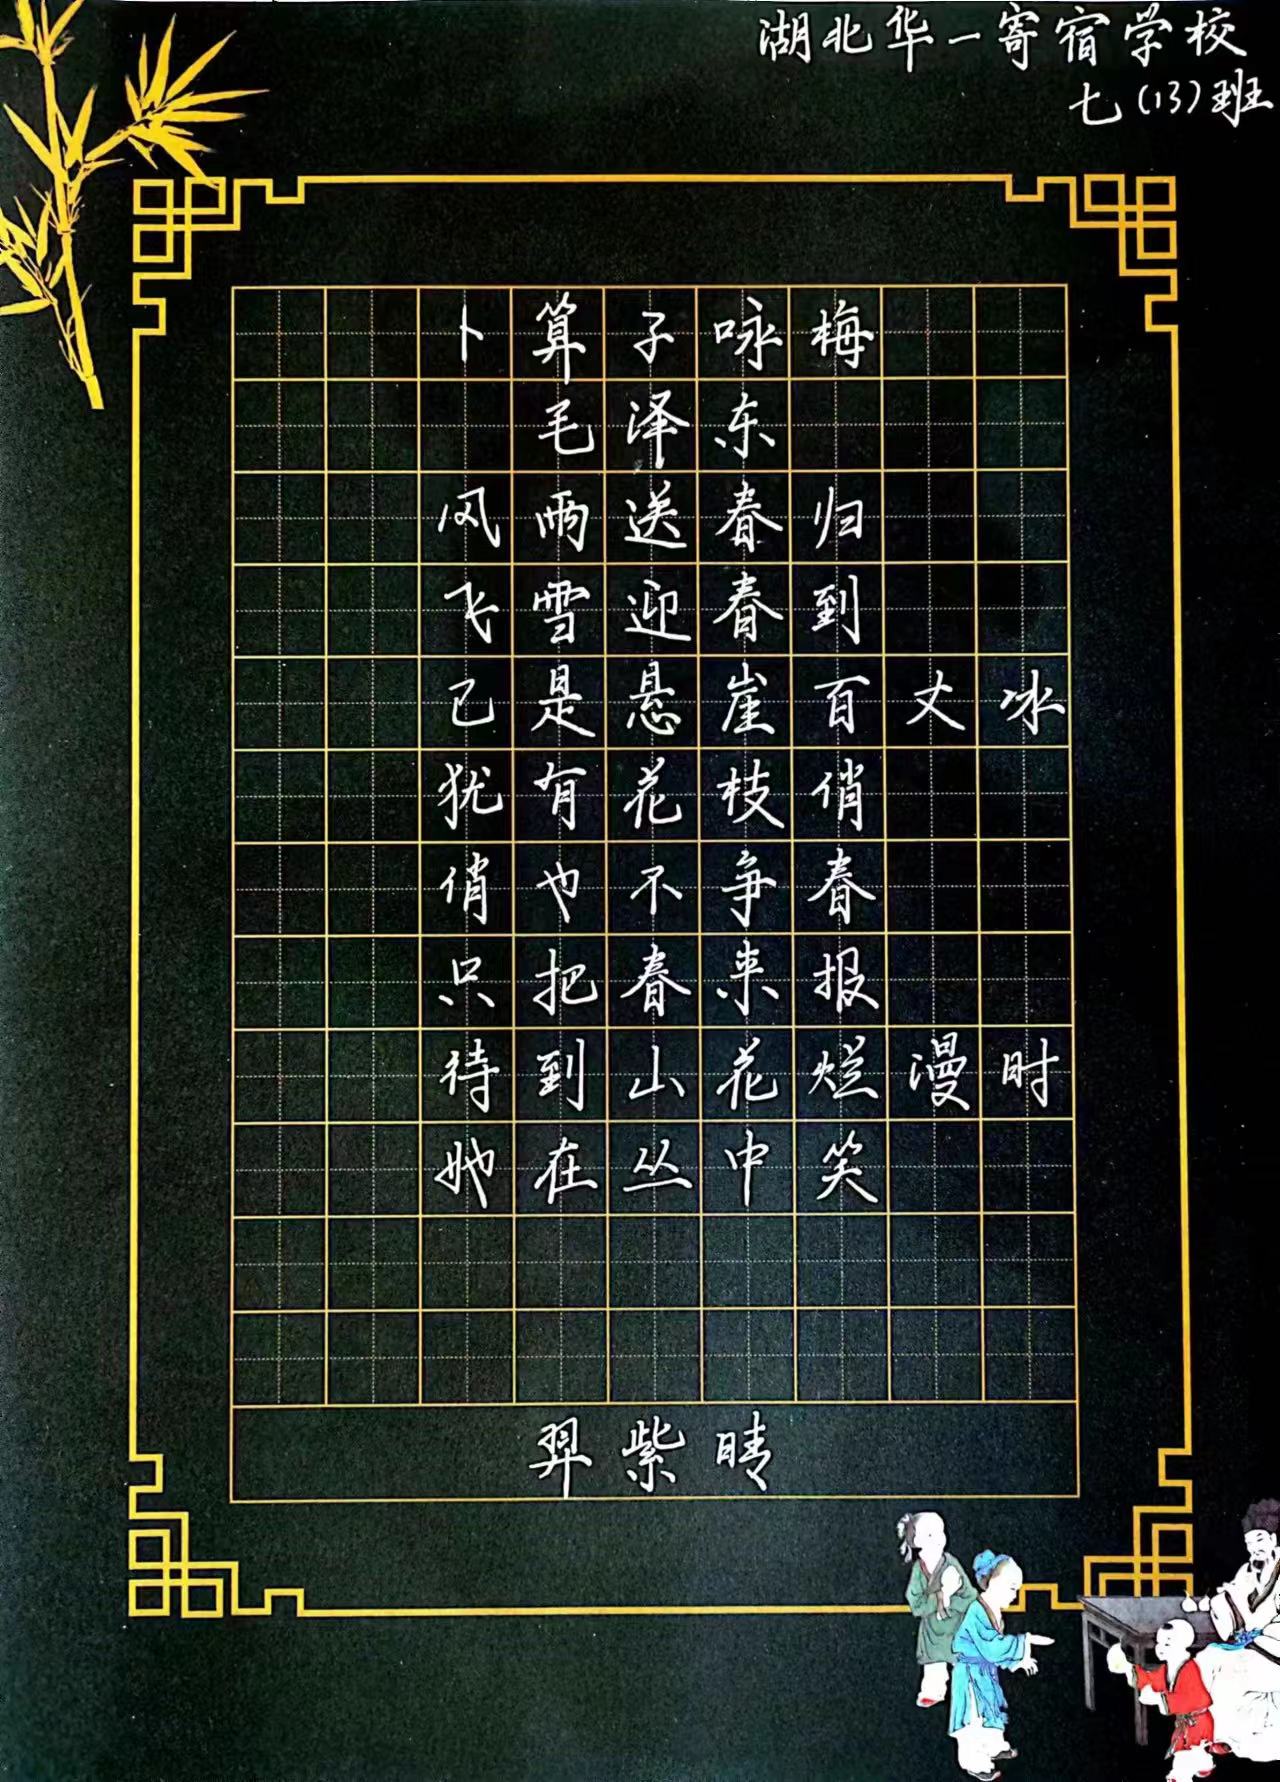 湖北华一寄宿学校
七(13)班
卜算子咏梅
毛泽东
风雨送春归
飞雪迎春到
已是悬崖百丈冰
犹有花枝俏
俏也不争春
只把春来报
待到山花烂漫时
她在丛中笑
羿紫晴